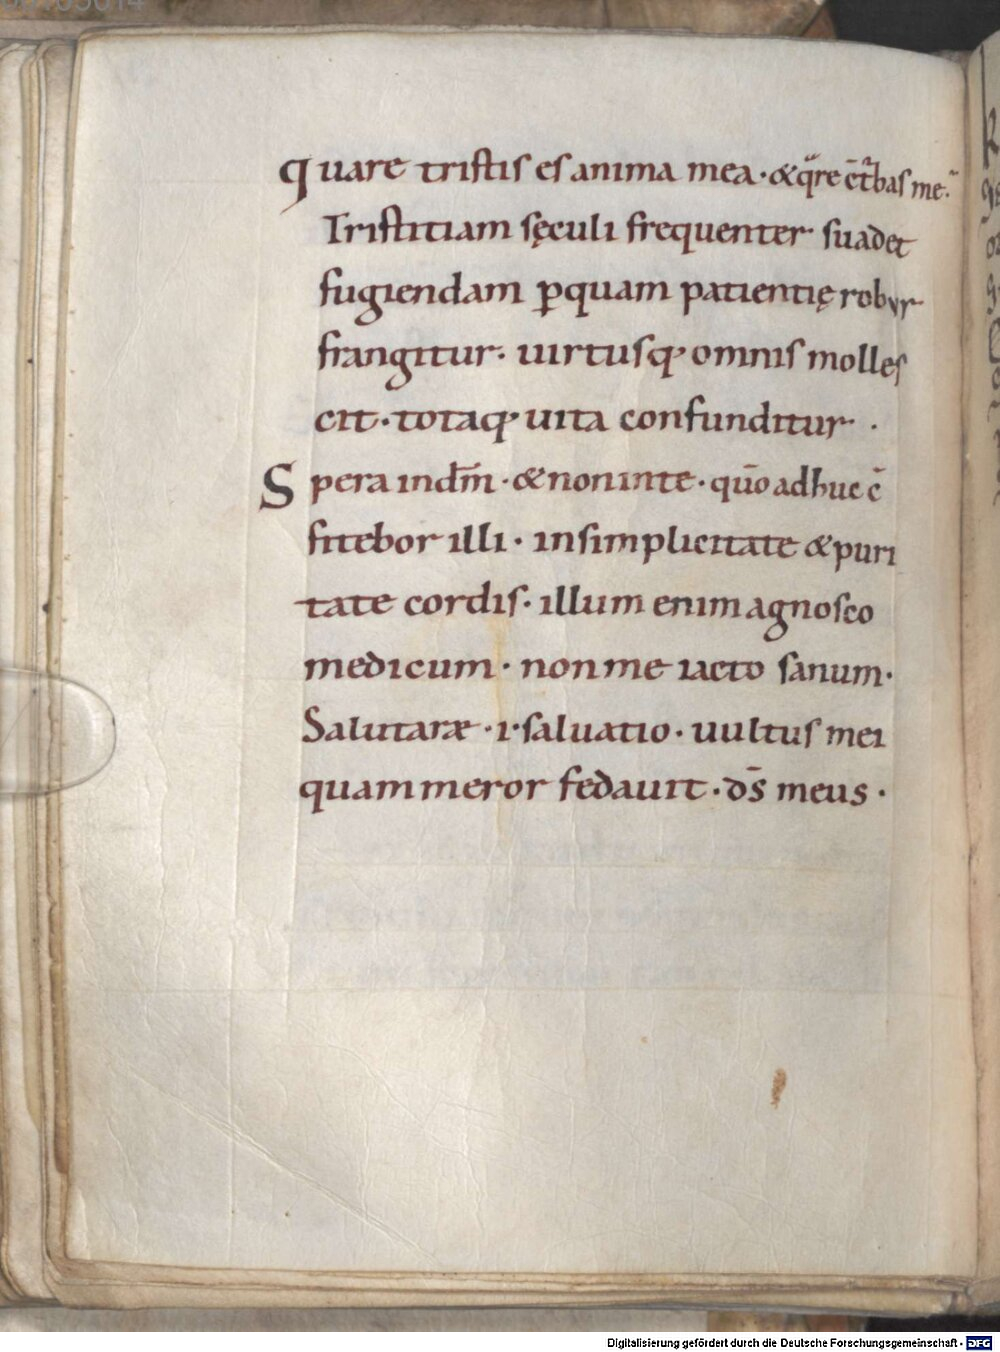 quare tristis es anima mea · & q̈re ct̄bas me ·
Tristitiam sęculi frequenter suadet
fugiendam ꝑquam patientię robur
frangitur · uirtusq· omnis molles
cit · totaq· uita confunditur ·
Spera in dm̄ · & non in te · qūo adhuc c̄
fitebor illi · in simplicitate & puri
tate cordis · illum enim agnosco
medicum · non me iacto sanum ·
Salutaræ · i · saluatio · uultus mei
quam meror fedauit · ds̄ meus ·
Digitalisierung gefördert durch die Deutsche Forschungsgemeinschaft - DFG